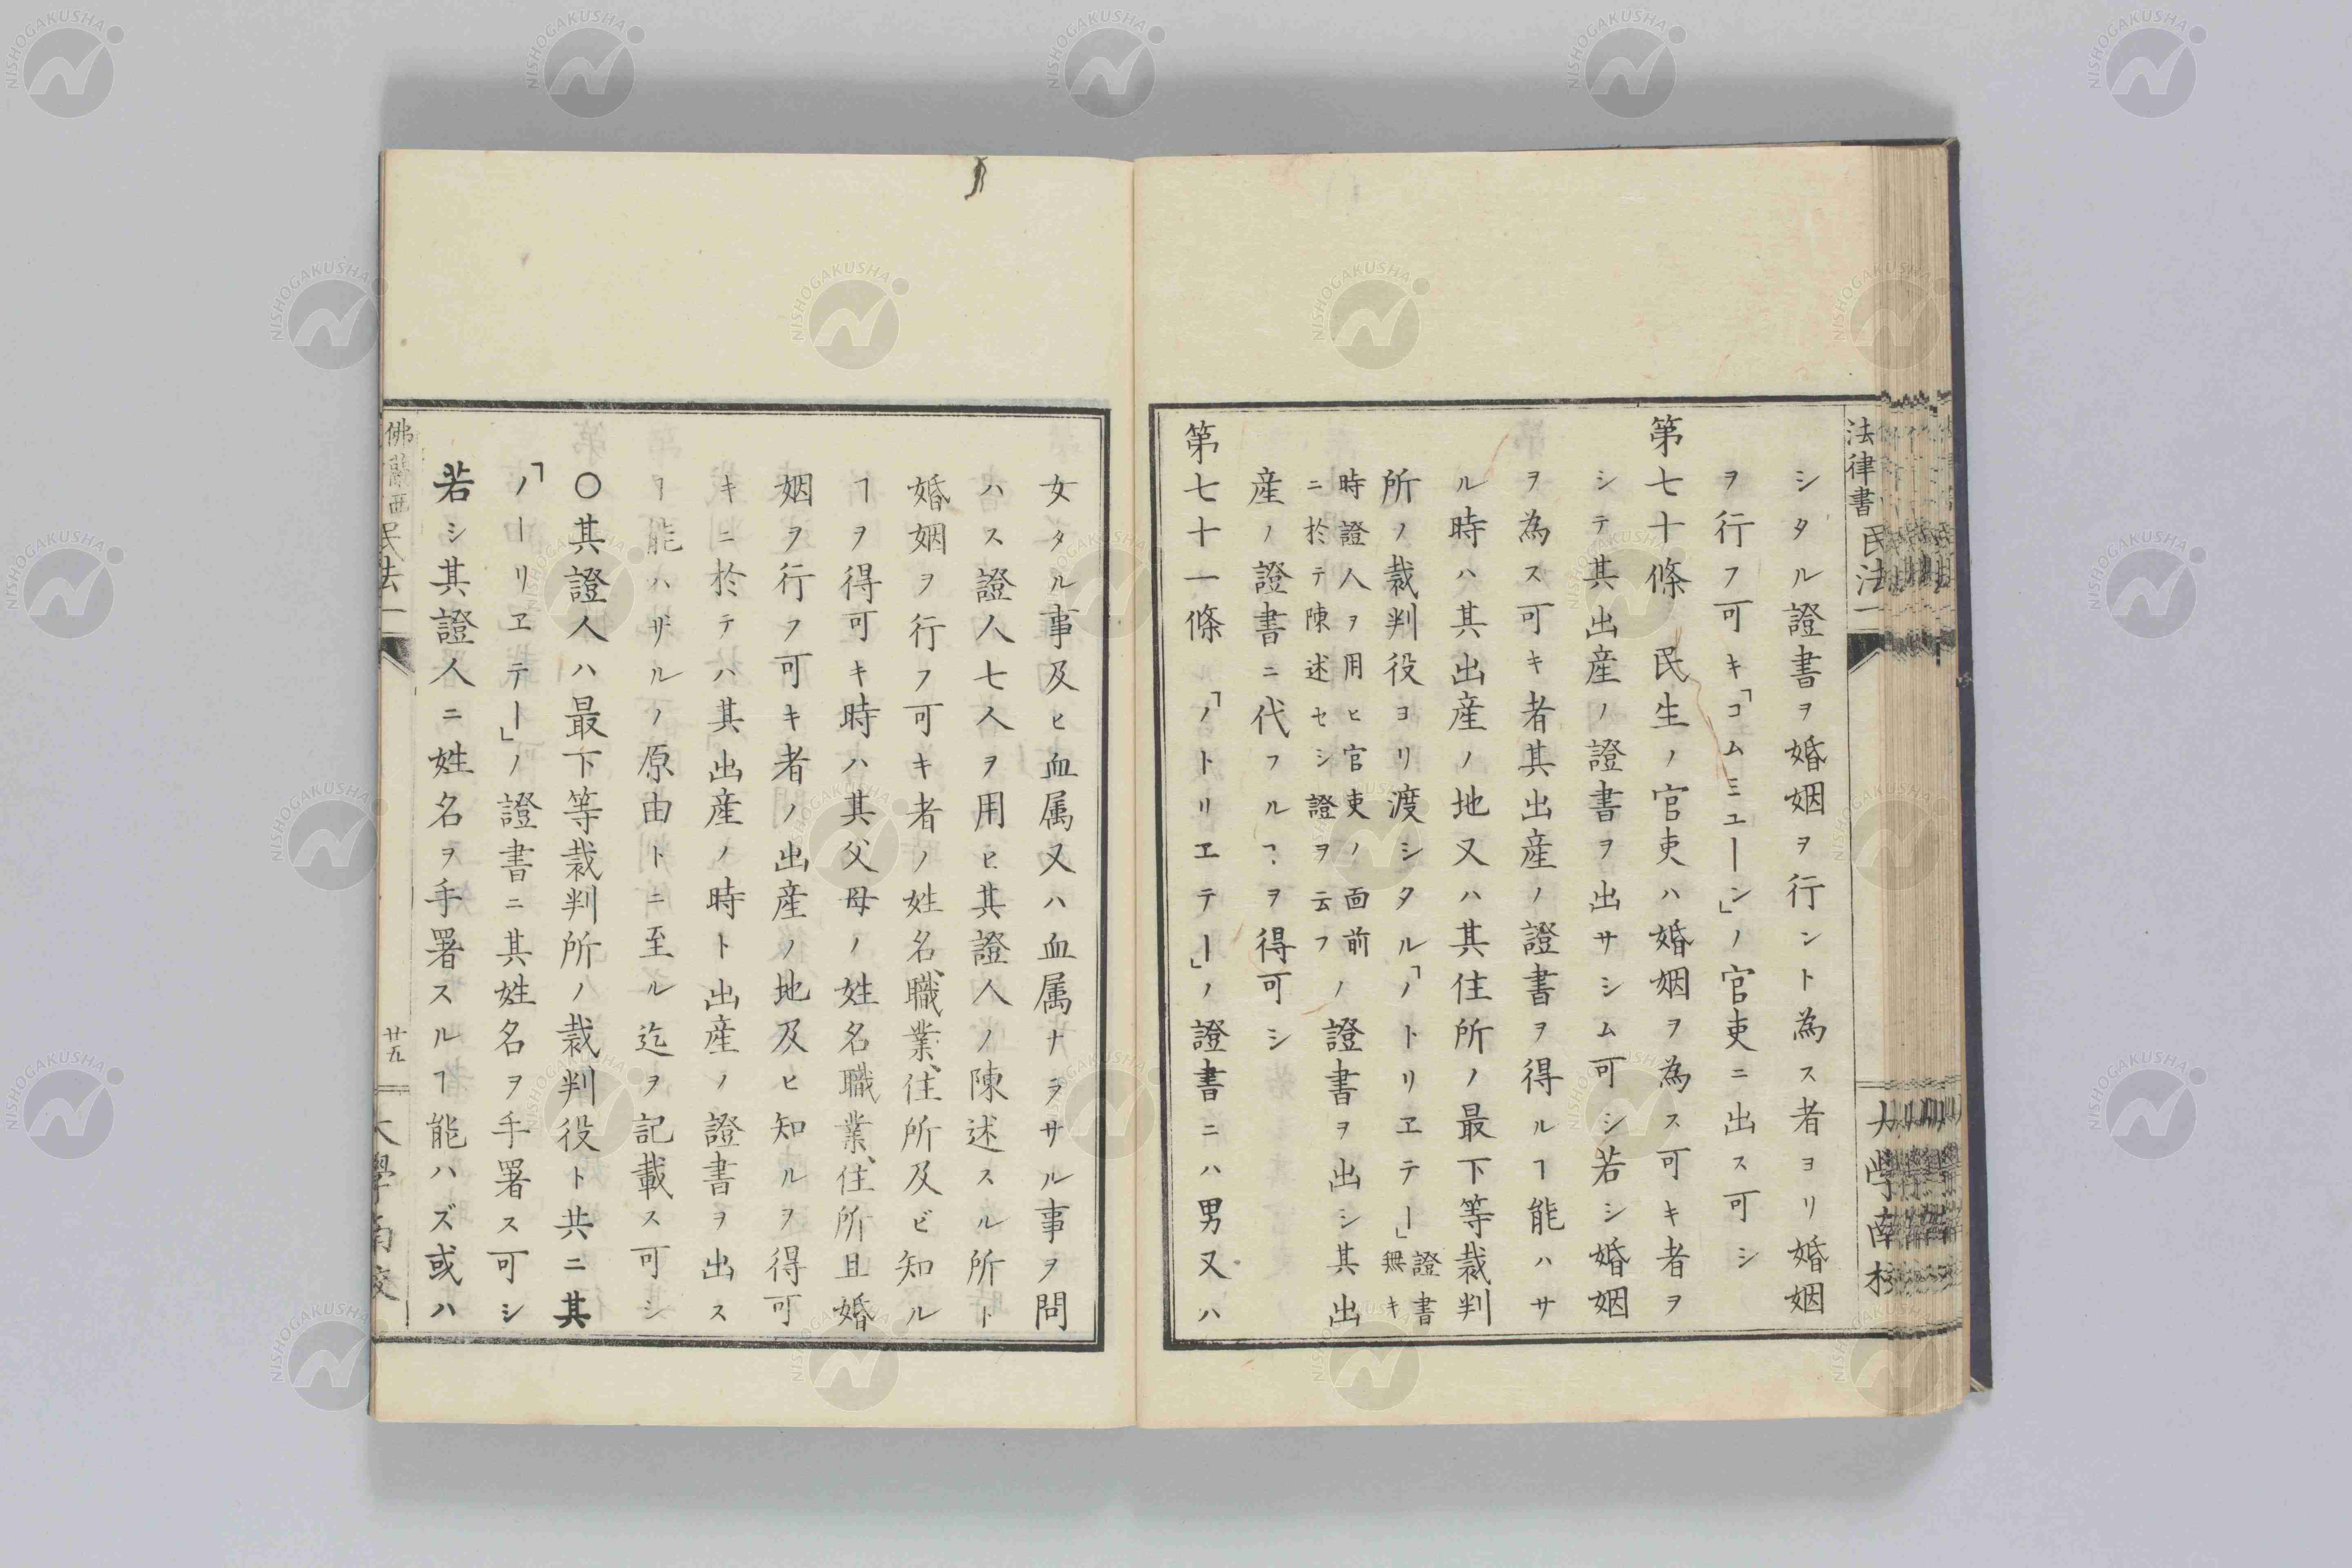 法律書 民法一
大学南校
シタル證書ヲ婚姻ヲ行ント為ス者ヨリ婚姻
ヲ行フ可キ「コムミユーン」ノ官吏ニ出ス可シ
第七十條 民生ノ官吏ハ婚姻ヲ為ス可キ者ヲ
シテ其出産ノ證書ヲ出サシム可シ若シ婚姻
ヲ為ス可キ者其出産ノ證書ヲ得ルヿ能ハサ
ル時ハ其出産ノ地又ハ其住所ノ最下等裁判
所ノ裁判役ヨリ渡シタル「ノトリヱテー」證書無キ
時證人ヲ用ヒ官吏ノ面前ニ於テ陳述セシ證ヲ云フノ證書ヲ出シ其出
産ノ證書ニ代フルヿヲ得可シ
第七十一條 「ノトリヱテー」ノ證書ニハ男又ハ
女タル事及ヒ血属又ハ血属ナラサル事ヲ問
ハス證人七人ヲ用ヒ其證人ノ陳述スル所ト
婚姻ヲ行フ可キ者ノ姓名、職業、住所及ビ知ル
ヿヲ得可キ時ハ其父母ノ姓名職業、住所且婚
姻ヲ行フ可キ者ノ出産ノ地及ヒ知ルヲ得可
キニ於テハ其出産ノ時ト出産ノ證書ヲ出ス
ヿ能ハザルノ原由トニ至ル迄ヲ記載ス可シ
〇其證人ハ最下等裁判所ノ裁判役ト共ニ其
「ノーリヱテー」ノ證書ニ其姓名ヲ手署ス可シ
若シ其證人ニ姓名ヲ手署スルヿ能ハズ或ハ
佛蘭西民法一
廿五
大學南校
NISHOGAKUSHA